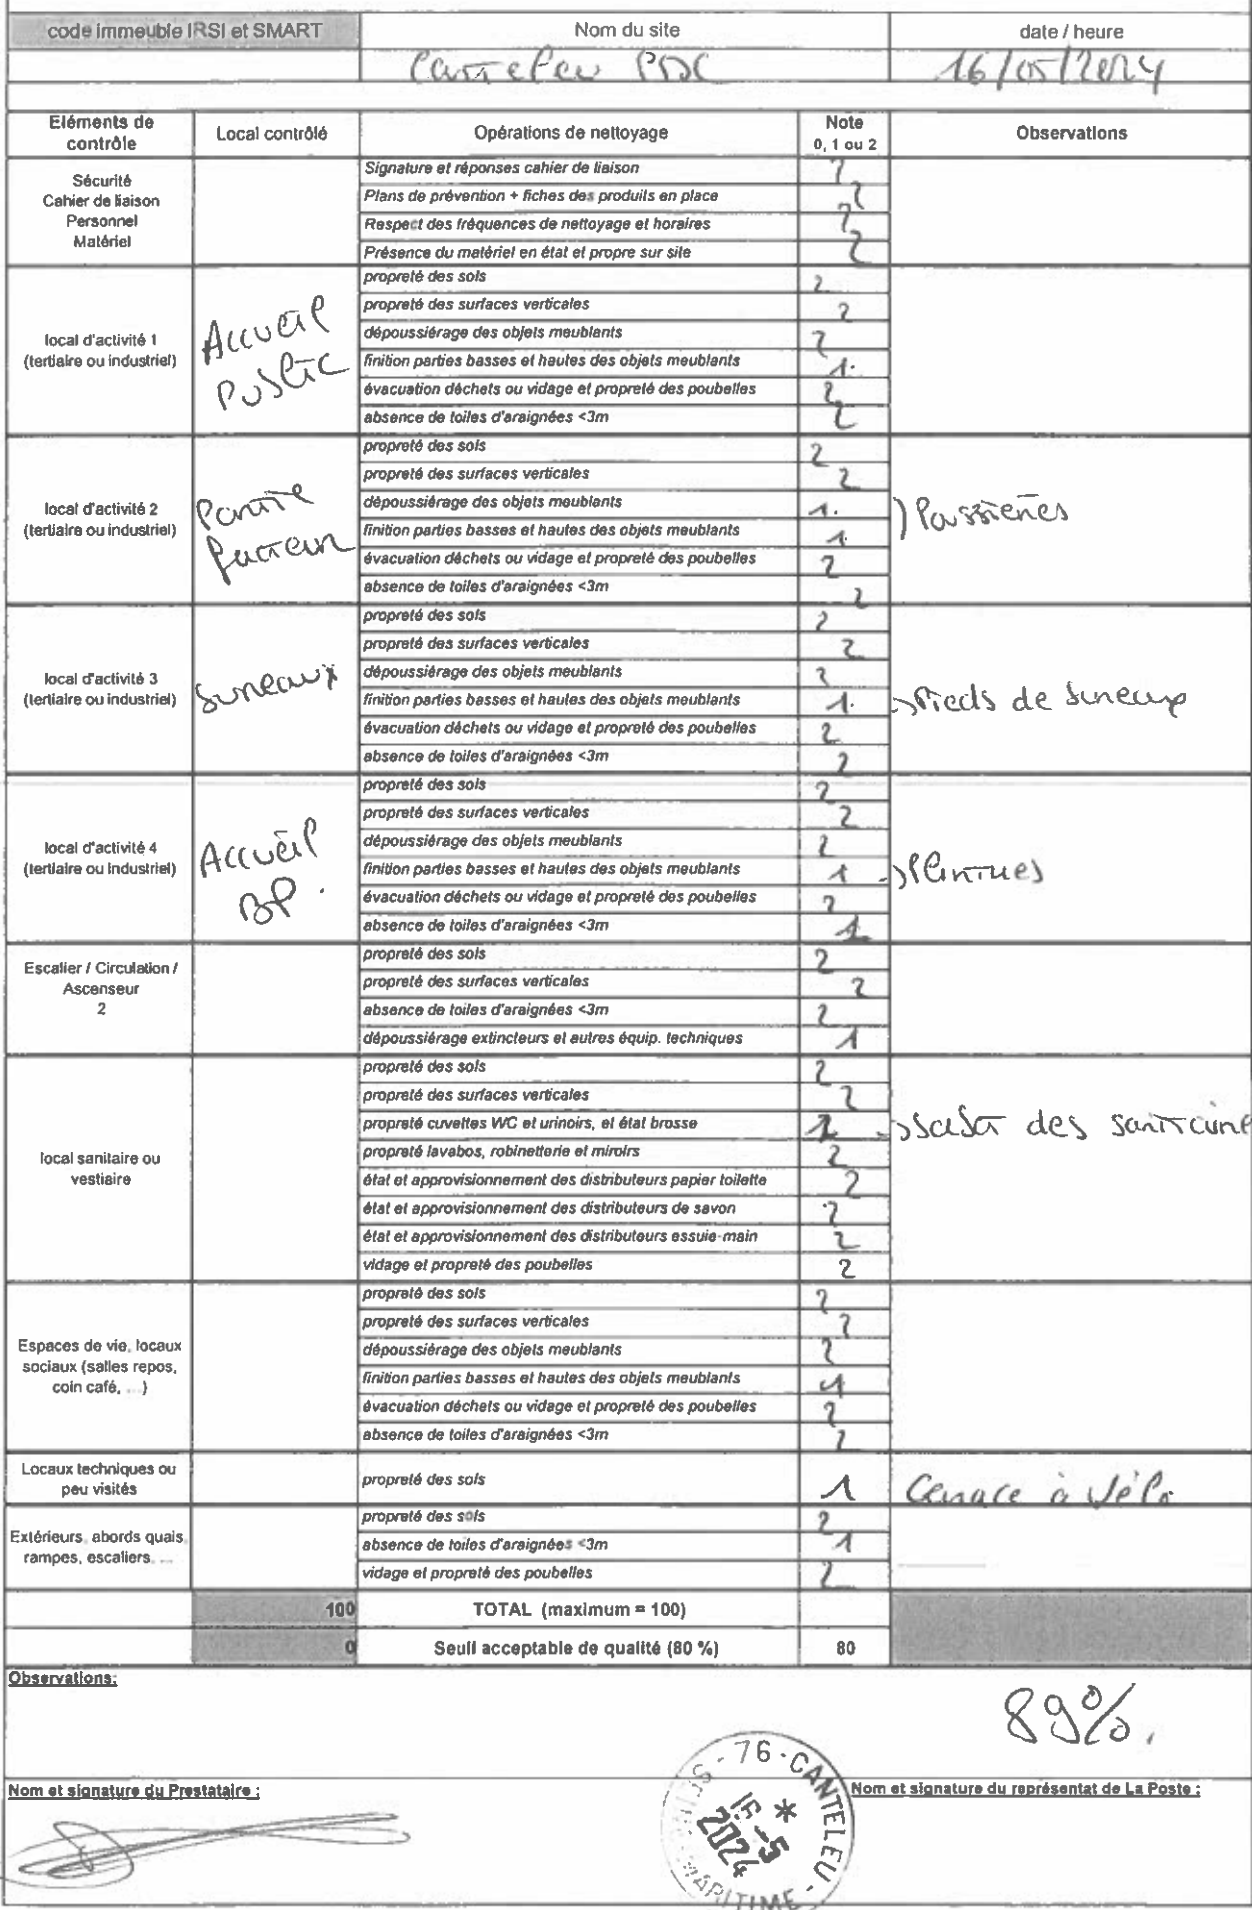 code immeuble IRSI et SMART Nom du site date / heure
Canteleu PDC 16/05/2024
Eléments de contrôle Local contrôlé Opérations de nettoyage Note 0, 1 ou 2 Observations
Sécurité
Cahier de liaison
Personnel
Matériel
Signature et réponses cahier de liaison 2
Plans de prévention + fiches des produits en place 2
Respect des fréquences de nettoyage et horaires 2
Présence du matériel en état et propre sur site 2
local d'activité 1
(tertiaire ou industriel)
Accueil
Public
propreté des sols 2
propreté des surfaces verticales 2
dépoussiérage des objets meublants 2
finition parties basses et hautes des objets meublants 1.
évacuation déchets ou vidage et propreté des poubelles 2
absence de toiles d'araignées <3m 2
local d'activité 2
(tertiaire ou industriel)
Partie
facteur
propreté des sols 2
propreté des surfaces verticales 2
dépoussiérage des objets meublants 1. ) Poussières
finition parties basses et hautes des objets meublants 1.
évacuation déchets ou vidage et propreté des poubelles 2
absence de toiles d'araignées <3m 2
local d'activité 3
(tertiaire ou industriel)
bureaux
propreté des sols 2
propreté des surfaces verticales 2
dépoussiérage des objets meublants 2
finition parties basses et hautes des objets meublants 1. -> Pieds de bureaux
évacuation déchets ou vidage et propreté des poubelles 2
absence de toiles d'araignées <3m 2
local d'activité 4
(tertiaire ou industriel)
Accueil
BP.
propreté des sols 2
propreté des surfaces verticales 2
dépoussiérage des objets meublants 2
finition parties basses et hautes des objets meublants 1 -> Plintues
évacuation déchets ou vidage et propreté des poubelles 2
absence de toiles d'araignées <3m 1
Escalier / Circulation /
Ascenseur
2
propreté des sols 2
propreté des surfaces verticales 2
absence de toiles d'araignées <3m 2
dépoussiérage extincteurs et autres équip. techniques 1
local sanitaire ou
vestiaire
propreté des sols 2
propreté des surfaces verticales 2
propreté cuvettes WC et urinoirs, et état brosse 1 -> des sanitaire
propreté lavabos, robinetterie et miroirs 2
état et approvisionnement des distributeurs papier toilette 2
état et approvisionnement des distributeurs de savon 2
état et approvisionnement des distributeurs essuie-main 2
vidage et propreté des poubelles 2
Espaces de vie, locaux
sociaux (salles repos,
coin café, ...)
propreté des sols 2
propreté des surfaces verticales 2
dépoussiérage des objets meublants 2
finition parties basses et hautes des objets meublants 1
évacuation déchets ou vidage et propreté des poubelles 2
absence de toiles d'araignées <3m 2
Locaux techniques ou
peu visités
propreté des sols 1 Garage à Vélo
Extérieurs, abords quais,
rampes, escaliers, ...
propreté des sols 2
absence de toiles d'araignées <3m 1
vidage et propreté des poubelles 2
100 TOTAL (maximum = 100)
0 Seuil acceptable de qualité (80 %) 80
Observations:
89%.
Nom et signature du Prestataire :
Nom et signature du représentat de La Poste :
76 - CANTELEU -
16 -5
2024
*
MARITIME